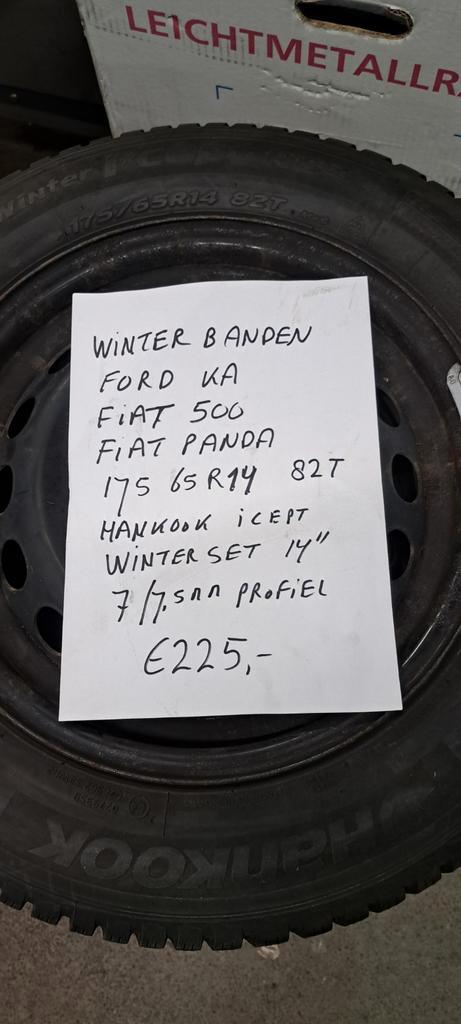 LEICHTMETALLR
Winter
175/65R14 82T
WINTER BANDEN
FORD KA
FIAT 500
FIAT PANDA
175 65 R14 82T
HANKOOK ICEPT
WINTER SET 14"
7/7.5mm PROFIEL
€225,-
HANKOOK